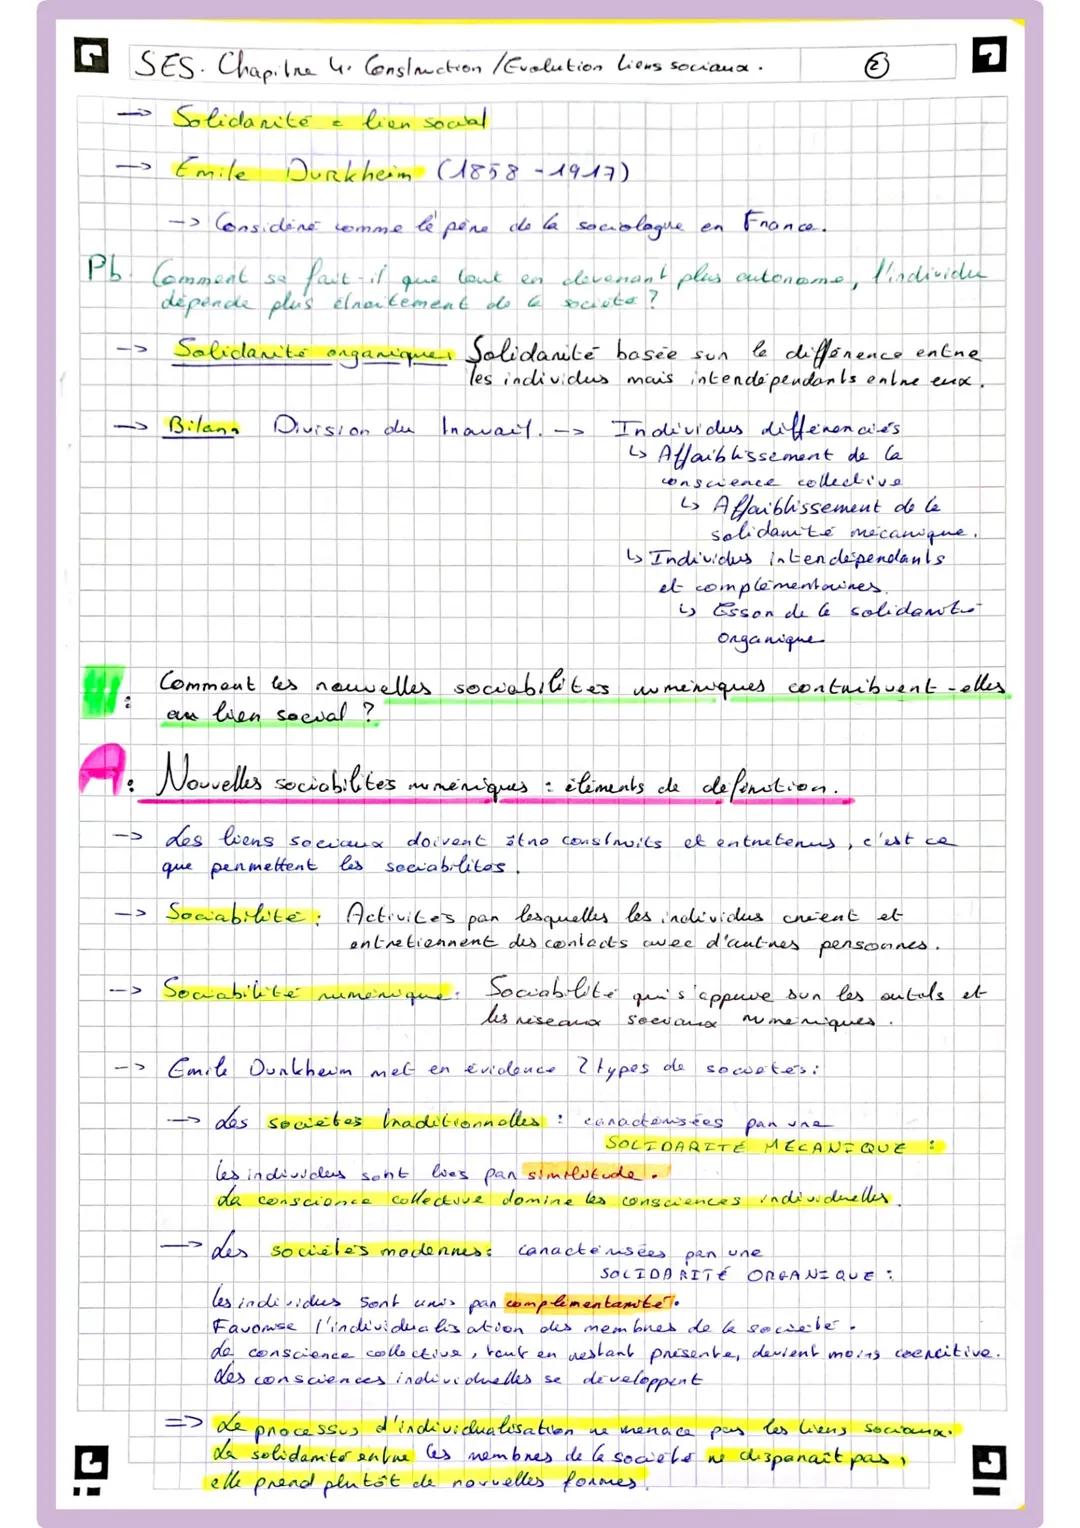 SES. Chapitre 4: Construction / Evolution liens sociaux.
2
→ Solidarité = lien social
→ Emile Durkheim (1858-1917)
-> Considéré comme le père de la sociologue en France.
Pb. Comment se fait-il que tout en devenant plus autonome, l'individu
dépende plus étroitement de la société ?
-> Solidarité organique: Solidarité basée sur la différence entre
les individus mais interdépendants entre eux.
-> Bilan: Division du travail. -> Individus différenciés
↳ Affaiblissement de la
conscience collective
↳ Affaiblissement de la
solidarité mécanique.
↳ Individus interdépendants
et complémentaires.
↳ Essor de la solidarité
organique
III: Comment les nouvelles sociabilités numériques contribuent-elles
au lien social ?
A: Nouvelles sociabilités numériques : éléments de définition.
-> Les liens sociaux doivent être construits et entretenus, c'est ce
que permettent les sociabilités.
-> Sociabilité: Activités par lesquelles les individus créent et
entretiennent des contacts avec d'autres personnes.
-> Sociabilité numérique: Sociabilité qui s'appuie sur les outils et
les réseaux sociaux numériques.
-> Emile Durkheim met en évidence 2 types de sociétés:
→ Les sociétés traditionnelles : caractérisées par une
SOLIDARITÉ MÉCANIQUE :
les individus sont liés par similitude.
La conscience collective domine les consciences individuelles.
→ Les sociétés modernes: caractérisées par une
SOLIDARITÉ ORGANIQUE :
les individus sont unis par complémentarité.
Favorise l'individualisation des membres de la société.
La conscience collective, tout en restant présente, devient moins coercitive.
Les consciences individuelles se développent
=> Le processus d'individualisation ne menace pas les liens sociaux.
La solidarité entre les membres de la société ne disparaît pas,
elle prend plutôt de nouvelles formes.